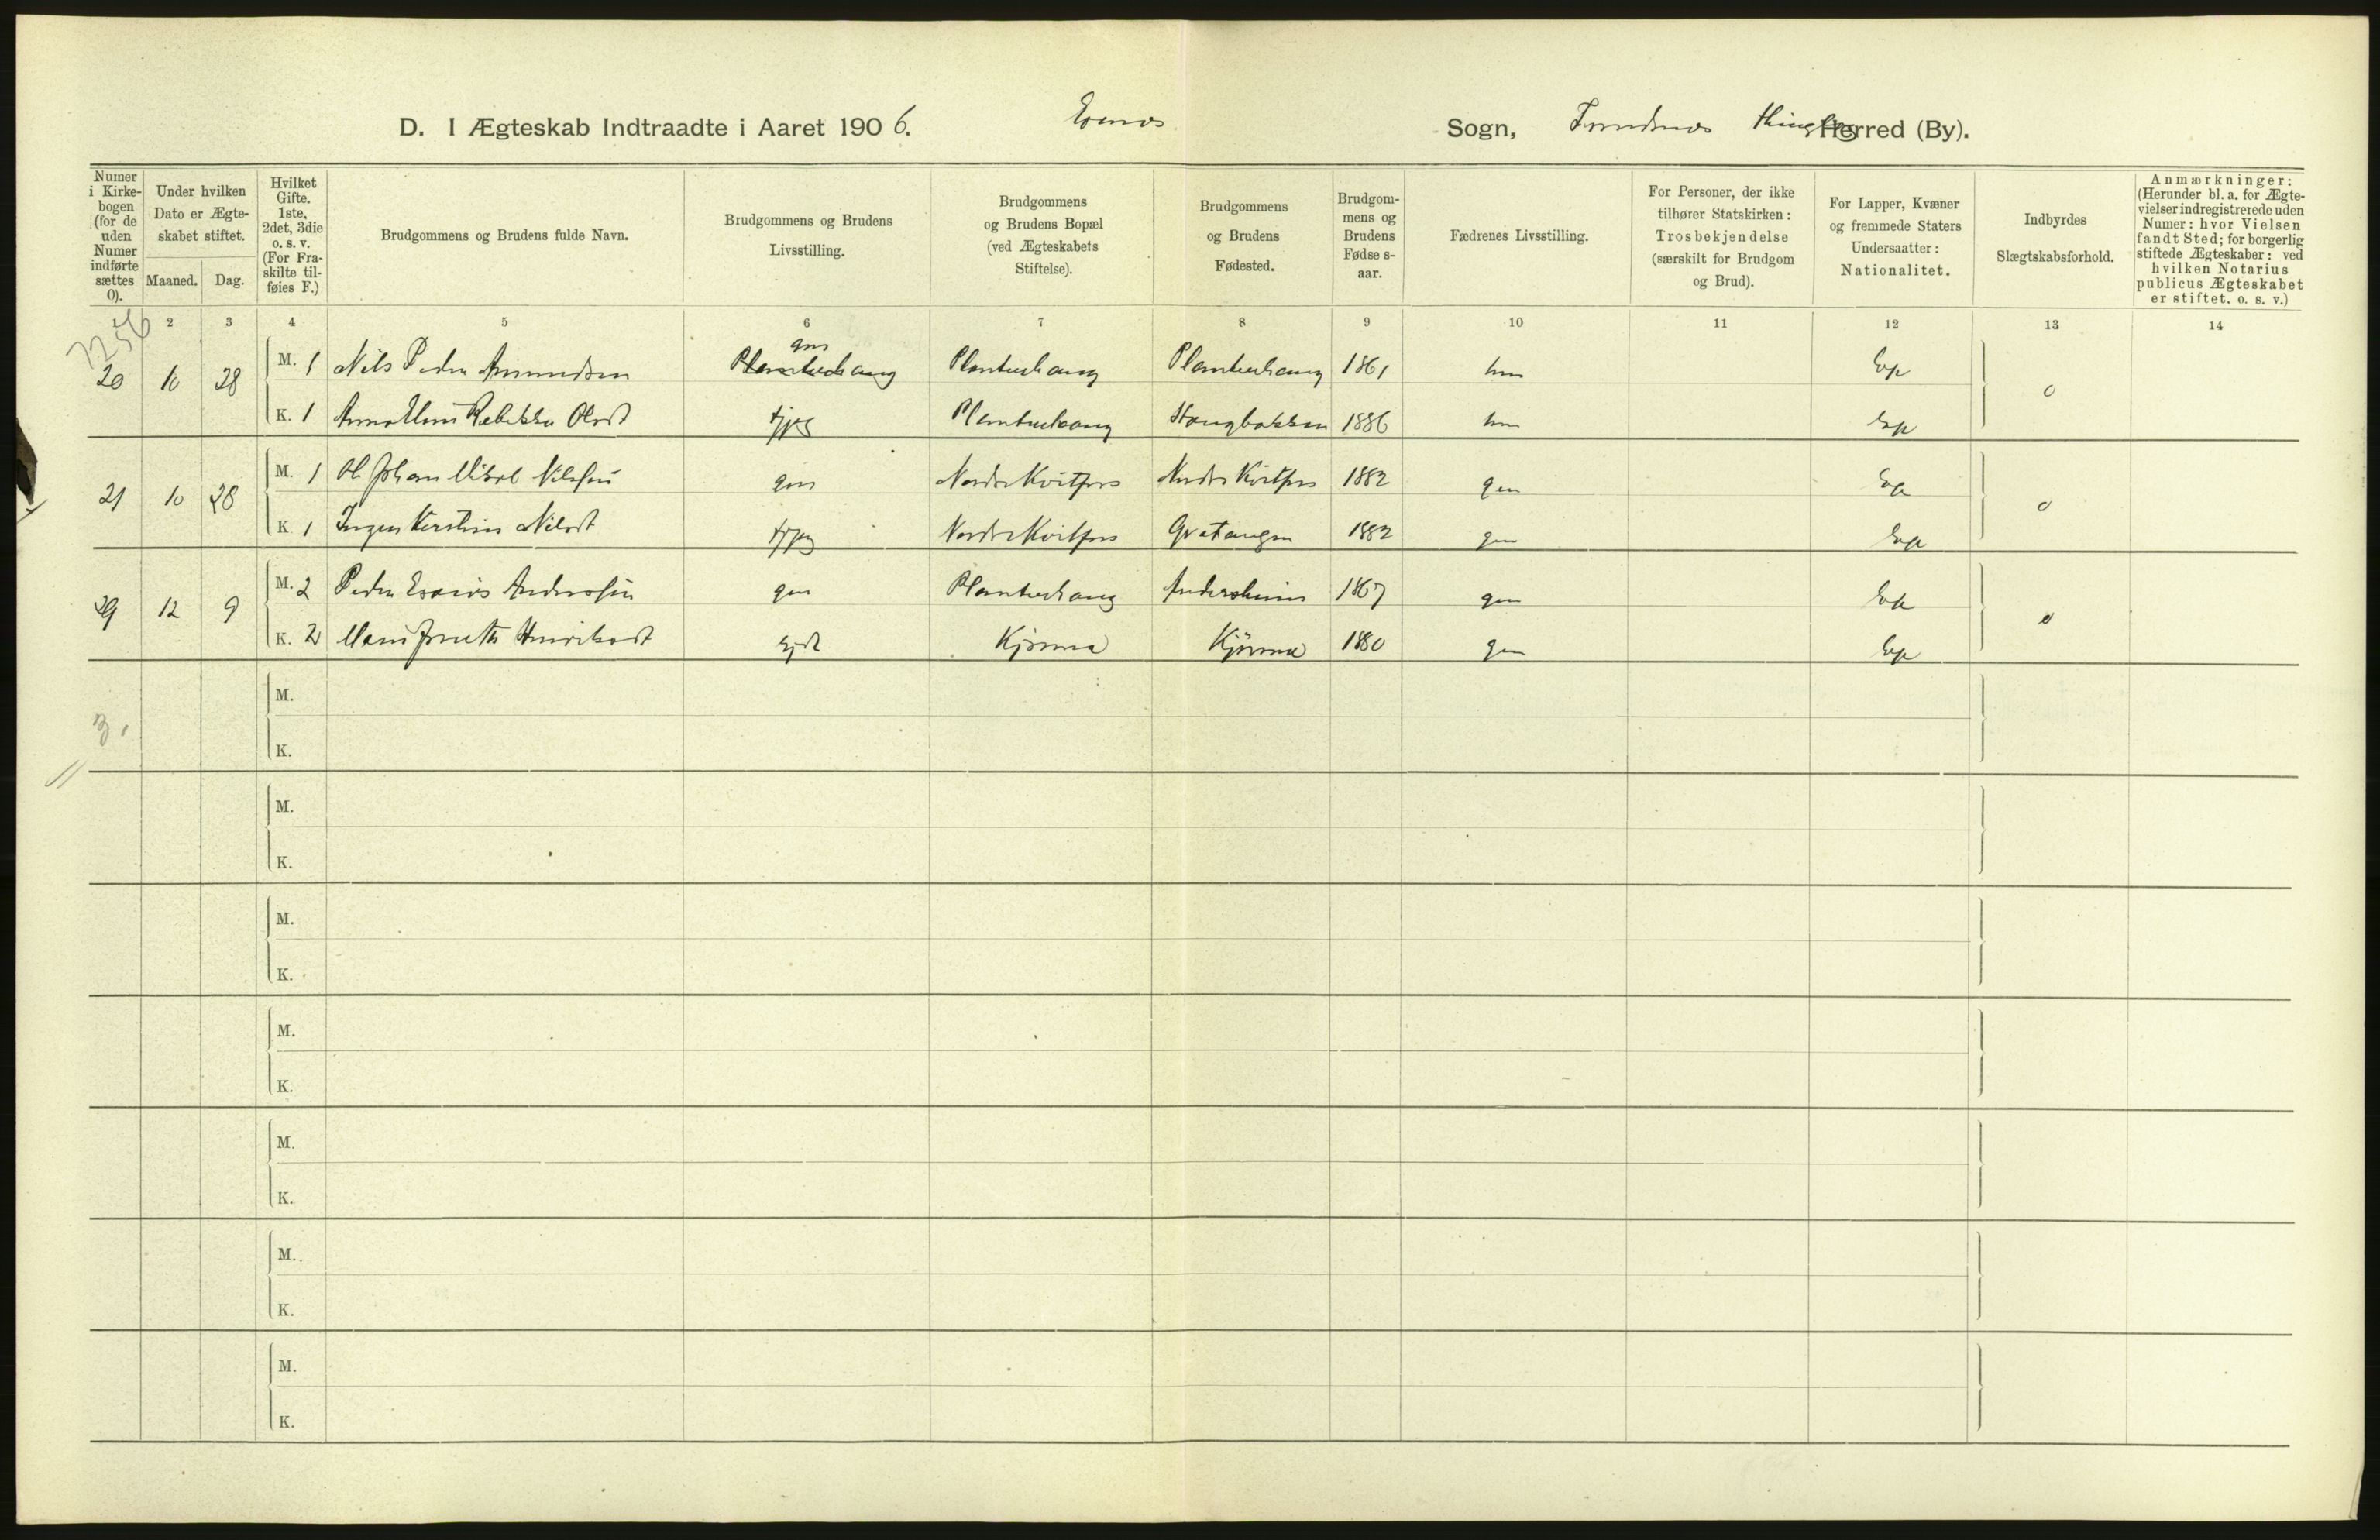 D. I Ægteskab Indtraadte i Aaret 1906. Evenes Sogn, Trondenes thinglag Herred (By).
Numer i Kirkebogen (for de uden Numer indførte sættes 0).
Under hvilken Dato er Ægteskabet stiftet.
Maaned. Dag.
Hvilket Gifte. 1ste, 2det, 3die o. s. v. (For Fraskilte tilføies F.)
Brudgommens og Brudens fulde Navn.
Brudgommens og Brudens Livsstilling.
Brudgommens og Brudens Bopæl (ved Ægteskabets Stiftelse).
Brudgommens og Brudens Fødested.
Brudgommens og Brudens Fødselsaar.
Fædrenes Livsstilling.
For Personer, der ikke tilhører Statskirken: Trosbekjendelse (særskilt for Brudgom og Brud).
For Lapper, Kvæner og fremmede Staters Undersaatter: Nationalitet.
Indbyrdes Slægtskabsforhold.
Anmærkninger: (Herunder bl. a. for Ægtevielser indregistrerede uden Numer: hvor Vielsen fandt Sted; for borgerlig stiftede Ægteskaber: ved hvilken Notarius publicus Ægteskabet er stiftet. o. s. v.)
1 2 3 4 5 6 7 8 9 10 11 12 13 14
20 10 28 M. 1 Nils Peder Amundsen gm Planterhaug Planterhaug Planterhaug 1861 Lap 0
K. 1 Anna Elens Rebekka Olsdt tjpg Planterhaug Stangbakken 1886 Lap
21 10 28 M. 1 Ole Johan Mikal Nilssen gm Nordre Kvitfors Nordre Kvitfors 1882 gm Lap 0
K 1 Inger Kerstine Nilsdt tjpg Nordre Kvitfors Gratangen 1882 gm Lap
29 12 9 M. 2 Peder Esaias Anderssen gm Planterhaug 1867 gm Lap 0
K. 2 Henriksdt Kjønna Kjønna 1880 gm Lap
3.
M.
K.
M.
K.
M.
K.
M.
K.
M.
K.
M.
K.
M.
K.